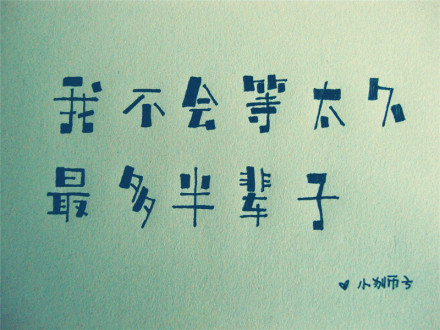 我不会等太久
最多半辈子
♥小狮子